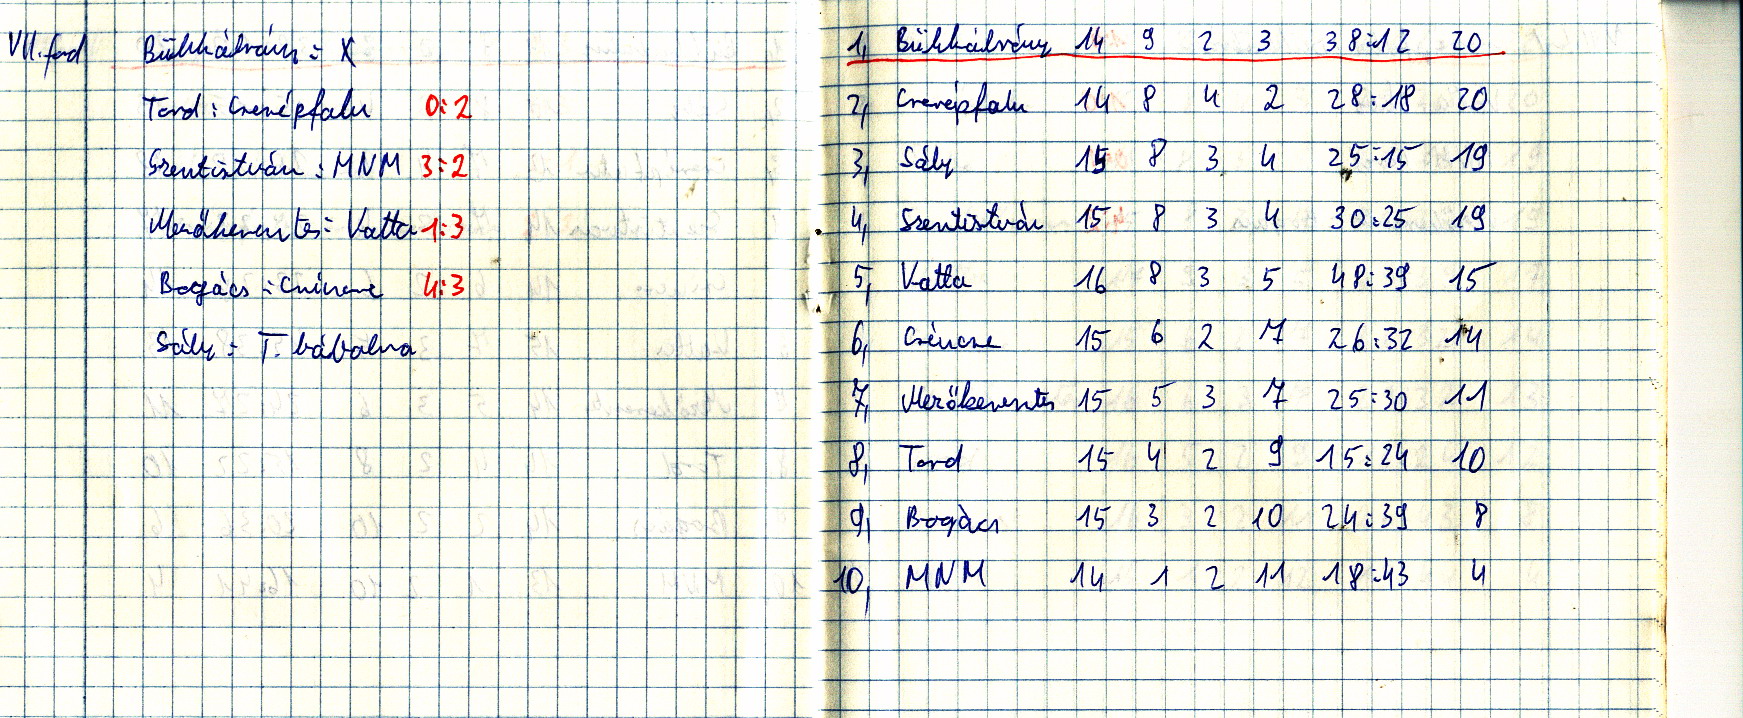 VII. ford
Bükkábrány : X
Tard : Cserépfalu 0:2
Szentistván : MNM 3:2
Mezőkeresztes : Vatta 1:3
Bogács : Csincse 4:3
Sály : T. bábolna
1, Bükkábrány 14 9 2 3 38:12 20
2, Cserépfalu 14 8 4 2 28:18 20
3, Sály 15 8 3 4 25:15 19
4, Szentistván 15 8 3 4 30:25 19
5, Vatta 16 8 3 5 48:39 15
6, Csincse 15 6 2 7 26:32 14
7, Mezőkeresztes 15 5 3 7 25:30 11
8, Tard 15 4 2 9 15:24 10
9, Bogács 15 3 2 10 24:39 8
10, MNM 14 1 2 11 18:43 4